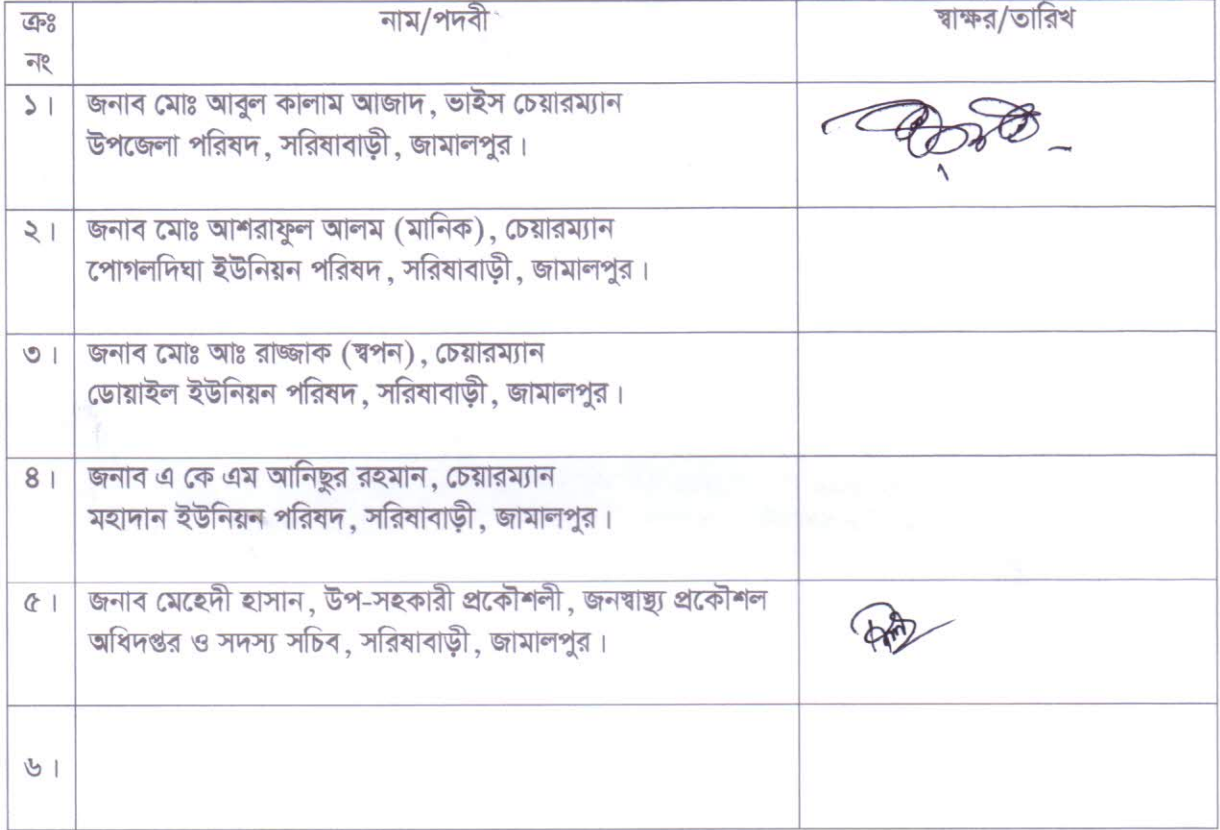 ক্রঃ নাম/পদবী স্বাক্ষর/তারিখ
নং
১। জনাব মোঃ আবুল কালাম আজাদ, ভাইস চেয়ারম্যান
উপজেলা পরিষদ, সরিষাবাড়ী, জামালপুর।
২। জনাব মোঃ আশরাফুল আলম (মানিক), চেয়ারম্যান
পোগলদিঘা ইউনিয়ন পরিষদ, সরিষাবাড়ী, জামালপুর।
৩। জনাব মোঃ আঃ রাজ্জাক (স্বপন), চেয়ারম্যান
ডোয়াইল ইউনিয়ন পরিষদ, সরিষাবাড়ী, জামালপুর।
৪। জনাব এ কে এম আনিছুর রহমান, চেয়ারম্যান
মহাদান ইউনিয়ন পরিষদ, সরিষাবাড়ী, জামালপুর।
৫। জনাব মেহেদী হাসান, উপ-সহকারী প্রকৌশলী, জনস্বাস্থ্য প্রকৌশল
অধিদপ্তর ও সদস্য সচিব, সরিষাবাড়ী, জামালপুর।
৬।